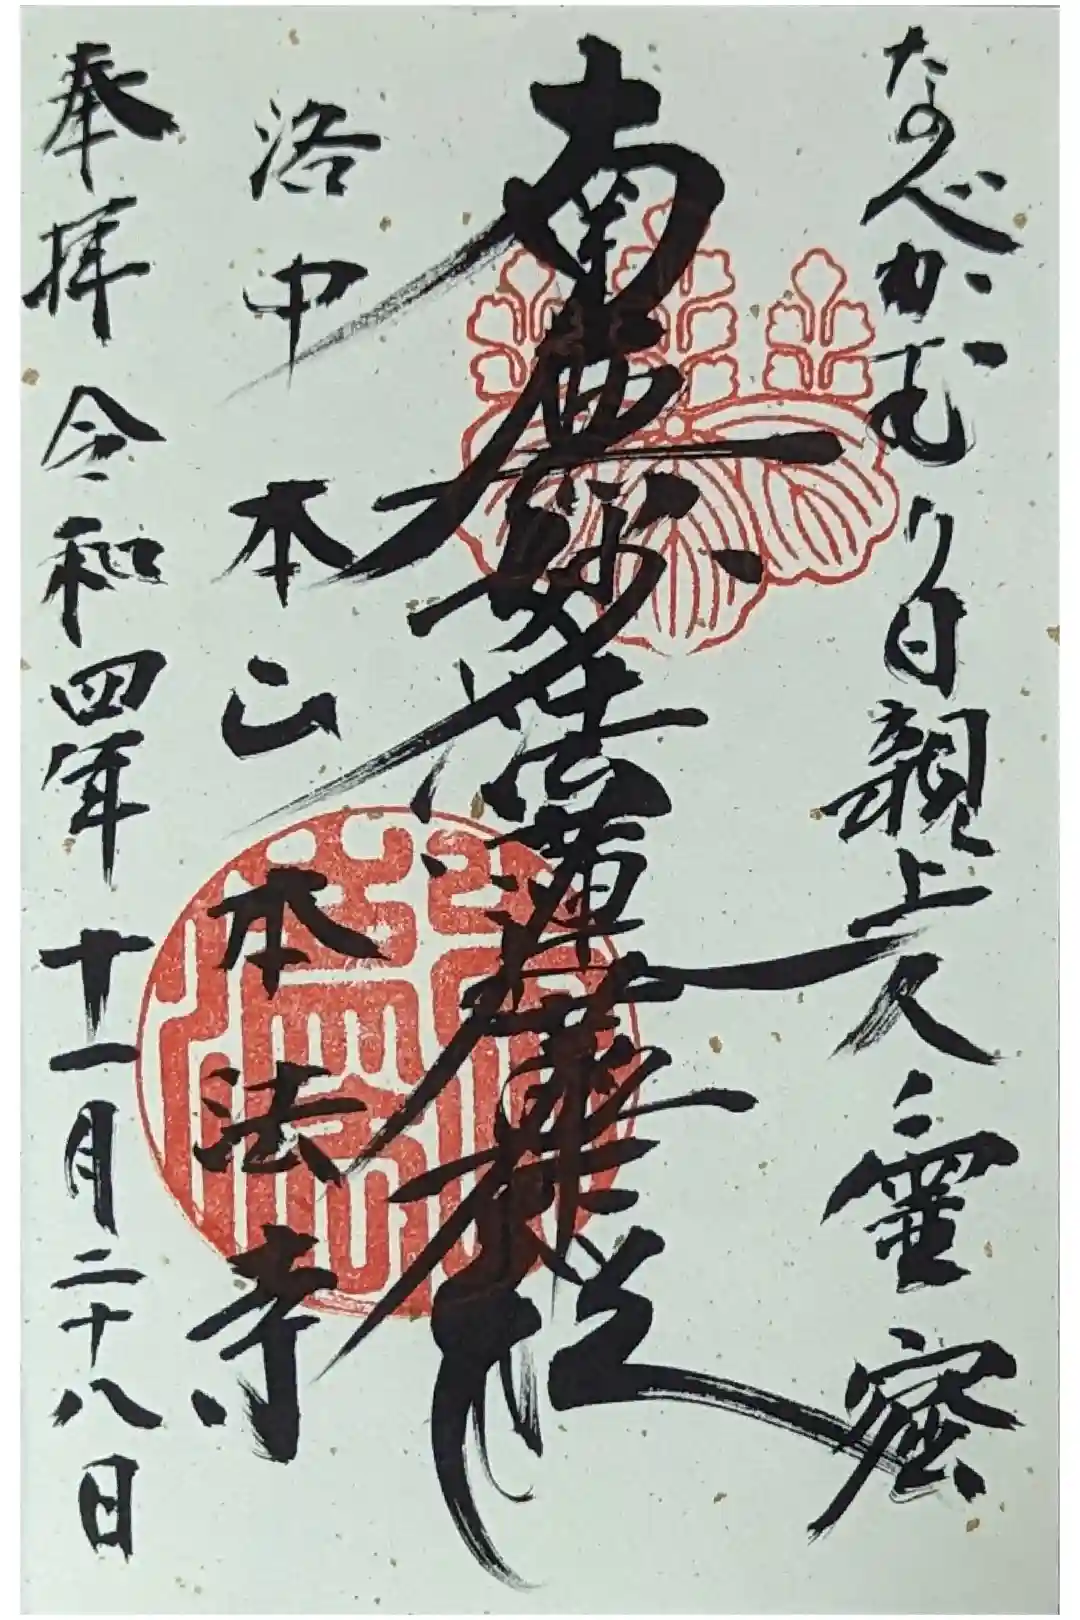 なべかむり日親上人霊窟
南無妙法蓮華経
洛中 本山 本法寺
奉拝 令和四年十一月二十八日